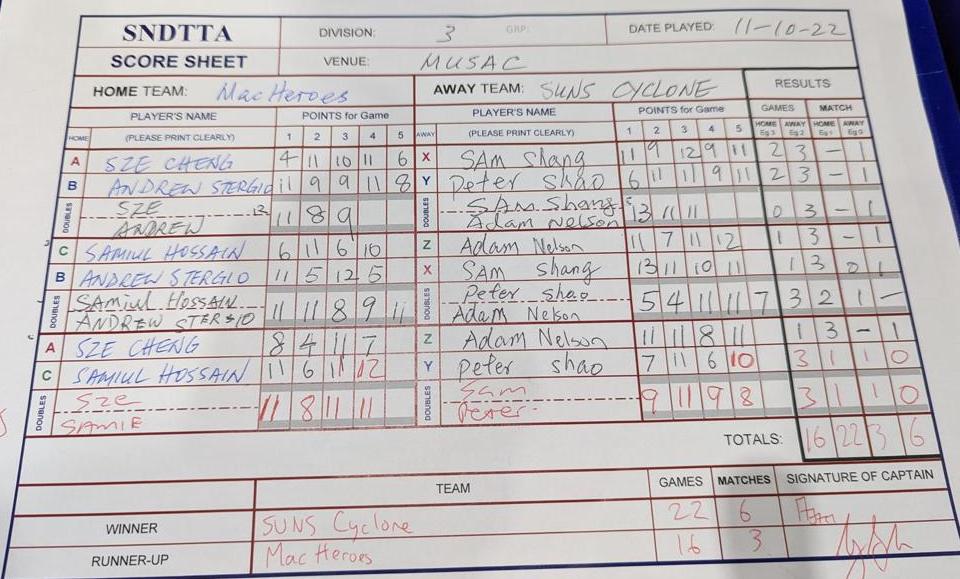 SNDTTA DIVISION: 3 GRP: DATE PLAYED: 11-10-22
SCORE SHEET VENUE: MUSAC
HOME TEAM: MacHeroes AWAY TEAM: SUNS CYCLONE RESULTS
PLAYER'S NAME POINTS for Game PLAYER'S NAME POINTS for Game GAMES MATCH
HOME (PLEASE PRINT CLEARLY) 1 2 3 4 5 AWAY (PLEASE PRINT CLEARLY) 1 2 3 4 5 HOME Eg 3 AWAY Eg 2 HOME Eg 1 AWAY Eg 0
A SZE CHENG 4 11 10 11 6 X SAM Shang 11 9 12 9 11 2 3 - 1
B ANDREW STERGIO 11 9 9 11 8 Y Peter shao 6 11 11 9 11 2 3 - 1
DOUBLES SZE ANDREW 12 11 8 9 DOUBLES SAM Shang Adam Nelson 13 11 11 0 3 - 1
C SAMIUL HOSSAIN 6 11 6 10 Z Adam Nelson 11 7 11 12 1 3 - 1
B ANDREW STERGIO 11 5 12 5 X SAM shang 13 11 10 11 1 3 0 1
DOUBLES SAMIUL HOSSAIN ANDREW STERSIO 11 11 8 9 11 DOUBLES Peter shao Adam Nelson 5 4 11 11 7 3 2 1 -
A SZE CHENG 8 4 11 7 Z Adam Nelson 11 11 8 11 1 3 - 1
C SAMIUL HOSSAIN 11 6 11 12 Y Peter shao 7 11 6 10 3 1 1 0
DOUBLES Sze SAMIE 11 8 11 11 DOUBLES Sam Peter- 9 11 9 8 3 1 1 0
TOTALS: 16 22 3 6
TEAM GAMES MATCHES SIGNATURE OF CAPTAIN
WINNER SUNS Cyclone 22 6
RUNNER-UP MacHeroes 16 3